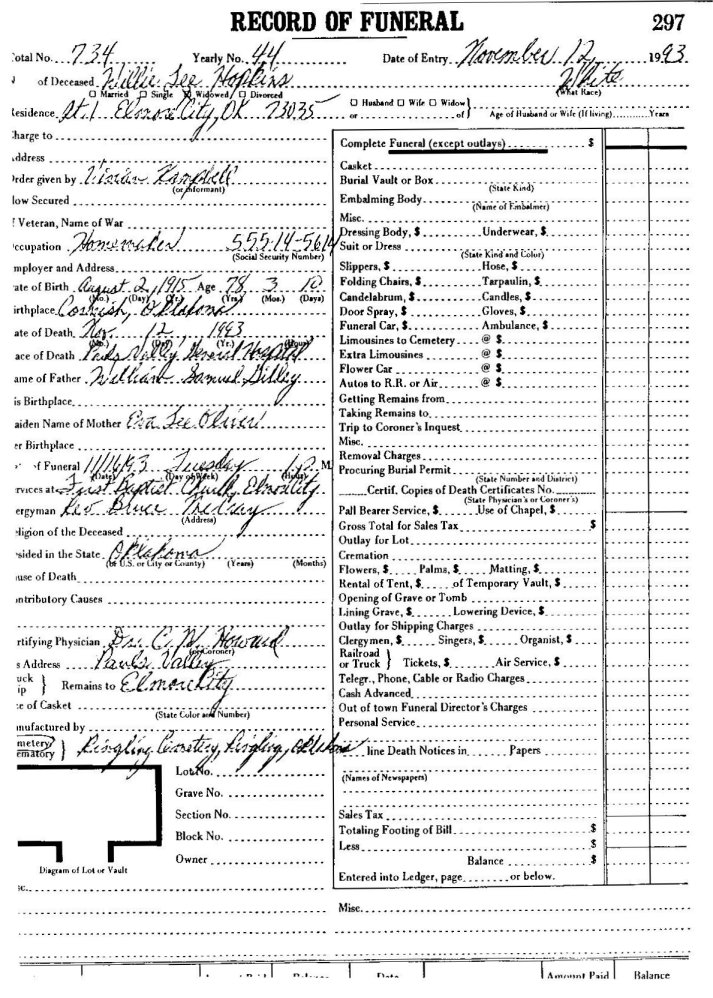 RECORD OF FUNERAL 297
otal No. 734 Yearly No. 44 Date of Entry November 12, 1993
of Deceased Willie Lee Hopkins White
☐ Married ☐ Single ☒ Widowed ☐ Divorced (What Race)
esidence Rt. 1 Elmore City, OK 73035 ☐ Husband ☐ Wife ☐ Widow } or of Age of Husband or Wife (If living) Years
harge to
ddress
rder given by Vivian Campbell
(or Informant)
ow Secured
f Veteran, Name of War
ccupation Homemaker 555-14-5614
(Social Security Number)
mployer and Address
ate of Birth August 2, 1915 Age 78 3 10
(Mo.) (Day) (Yr.) (Yrs.) (Mos.) (Days)
irthplace Cornish, Oklahoma
ate of Death Nov. 12 1993
(Mo.) (Day) (Yr.) (Hour)
ace of Death Pauls Valley General Hospital
ame of Father William Samuel Dilley
is Birthplace
aiden Name of Mother Eva Lee Oliver
er Birthplace
of Funeral 11/16/93 Tuesday 1 P. M
(Date) (Day of Week) (Hour)
rvices at First Baptist Church, Elmore City
ergyman Rev Bruce
(Address)
eligion of the Deceased
esided in the State Oklahoma
(or U.S. or City or County) (Years) (Months)
use of Death
ntributory Causes
rtifying Physician Dr. C. W. Howard
(or Coroner)
s Address Pauls Valley
uck ip } Remains to Elmore City
e of Casket
(State Color and Number)
nufactured by
metery ematory } Ringling Cemetery, Ringling, Oklahoma
Lot No.
Grave No.
Section No.
Block No.
Owner
Diagram of Lot or Vault
Complete Funeral (except outlays) $
Casket
Burial Vault or Box
(State Kind)
Embalming Body
(Name of Embalmer)
Misc.
Dressing Body, $ Underwear, $
Suit or Dress
(State Kind and Color)
Slippers, $ Hose, $
Folding Chairs, $ Tarpaulin, $
Candelabrum, $ Candles, $
Door Spray, $ Gloves, $
Funeral Car, $ Ambulance, $
Limousines to Cemetery @ $
Extra Limousines @ $
Flower Car @ $
Autos to R.R. or Air @ $
Getting Remains from
Taking Remains to
Trip to Coroner's Inquest
Misc.
Removal Charges
Procuring Burial Permit
(State Number and District)
Certif. Copies of Death Certificates No.
(State Physician's or Coroner's)
Pall Bearer Service, $ Use of Chapel, $
Gross Total for Sales Tax $
Outlay for Lot
Cremation
Flowers, $ Palms, $ Matting, $
Rental of Tent, $ of Temporary Vault, $
Opening of Grave or Tomb
Lining Grave, $ Lowering Device, $
Outlay for Shipping Charges
Clergymen, $ Singers, $ Organist, $
Railroad or Truck } Tickets, $ Air Service, $
Telegr., Phone, Cable or Radio Charges
Cash Advanced
Out of town Funeral Director's Charges
Personal Service
line Death Notices in Papers
(Names of Newspapers)
Sales Tax
Totaling Footing of Bill $
Less $
Balance $
Entered into Ledger, page or below.
Misc.
Date Amount Paid Balance